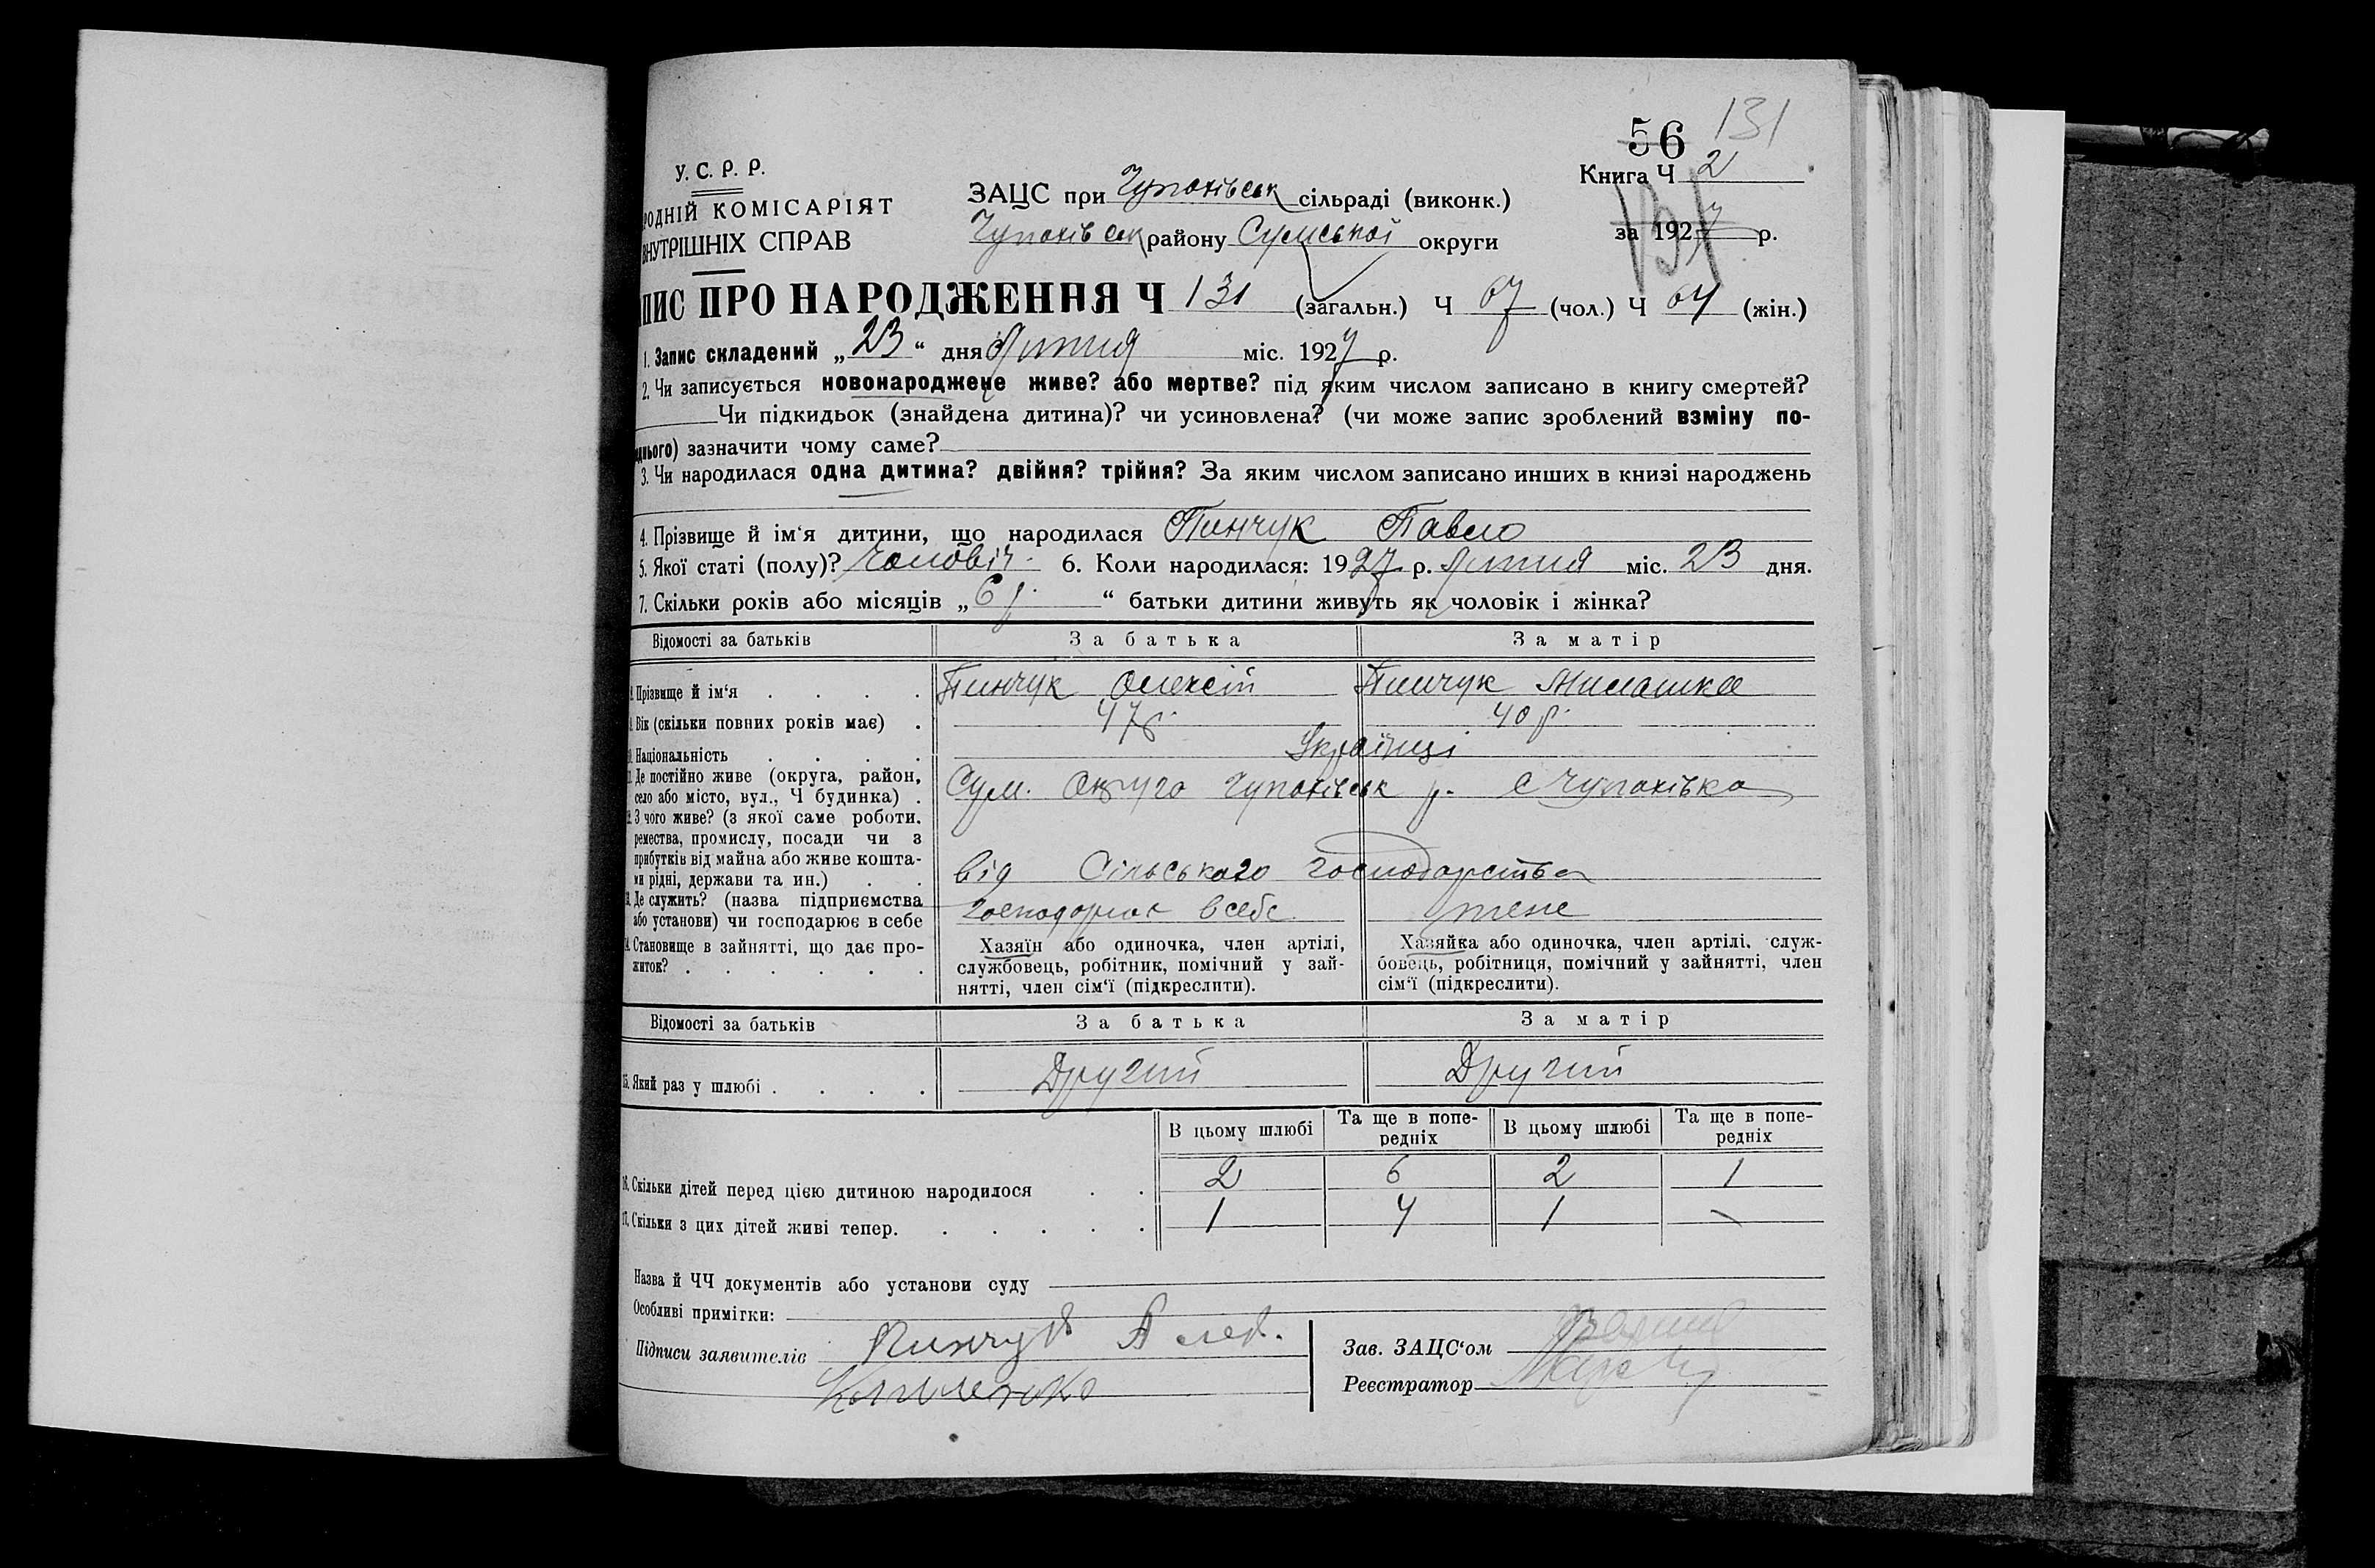 56 131
У. С. Р. Р.
РОДНІЙ КОМІСАРІЯТ
ВНУТРІШНІХ СПРАВ
ЗАЦС при Чупахівськ сільраді (виконк.)
Чупахівськ району Сумської округи
Книга Ч 2
за 1927 р.
131
ПИС ПРО НАРОДЖЕННЯ Ч 131 (загальн.) Ч 67 (чол.) Ч 64 (жін.)
1. Запис складений „23“ дня Липня міс. 1927 р.
2. Чи записується новонароджене живе? або мертве? під яким числом записано в книгу смертей?
Чи підкидьок (знайдена дитина)? чи усиновлена? (чи може запис зроблений взміну по-
днього) зазначити чому саме?
3. Чи народилася одна дитина? двійня? трійня? За яким числом записано инших в книзі народжень
4. Прізвище й ім‘я дитини, що народилася Пинчук Павло
5. Якої статі (полу)? чоловіч. 6. Коли народилася: 1927 р. Липня міс. 23 дня.
7. Скільки років або місяців „6 р.“ батьки дитини живуть як чоловік і жінка?
Відомості за батьків За батька За матір
Прізвище й ім‘я . . . . Пинчук Олексій Пинчук Милашка
Вік (скільки повних років має) . 47 р. 40 р.
Національність . . . . Українці
Де постійно живе (округа, район,
село або місто, вул., Ч будинка) . Сум. округа Чупахівськ р. с Чупахівка
З чого живе? (з якої саме роботи.
ремества, промислу, посади чи з
прибутків від майна або живе кошта-
ми рідні, держави та ин.) . . від Сільського господарства
Де служить? (назва підприємства
або установи) чи господарює в себе господарює в себе
Становище в зайнятті, що дає про-
житок? . . . . . .
Хазяїн або одиночка, член артілі,
службовець, робітник, помічний у зай-
нятті, член сім‘ї (підкреслити).
Хазяйка або одиночка, член артілі. служ-
бовець, робітниця, помічний у зайнятті, член
сім‘ї (підкреслити).
Відомості за батьків За батька За матір
15. Який раз у шлюбі . . . . Другий Другий
В цьому шлюбі Та ще в попе-
редніх В цьому шлюбі Та ще в попе-
редніх
16. Скільки дітей перед цією дитиною народилося . . 2 6 2 1
17. Скільки з цих дітей живі тепер. . . . . . 1 4 1 -
Назва й ЧЧ документів або установи суду
Особливі примітки:
Підписи заявителів Пинчук Алек.
Зав. ЗАЦС‘ом
Реєстратор